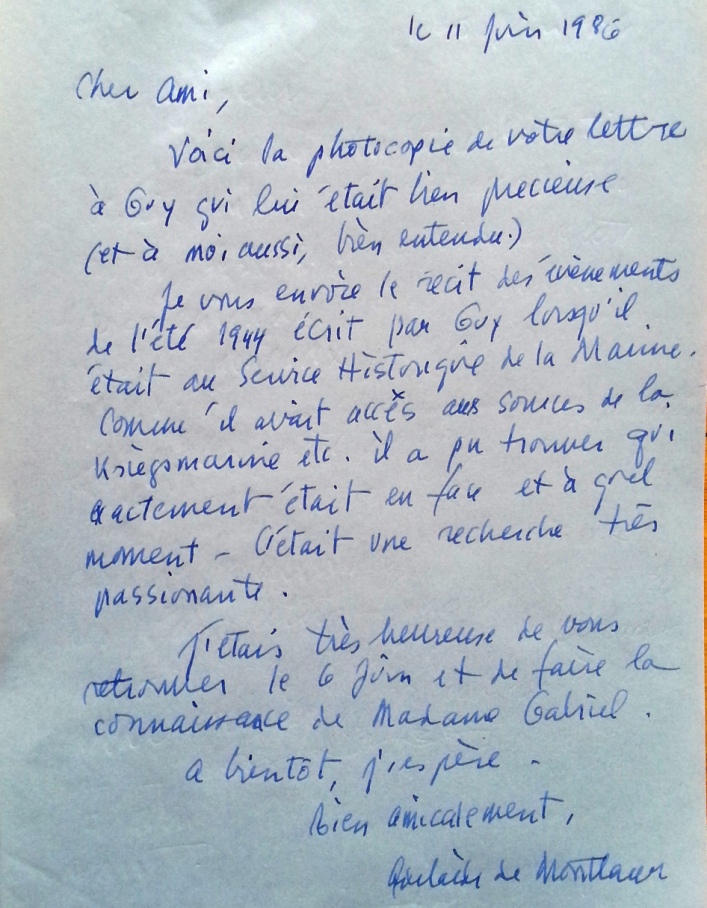 le 11 juin 1986
Cher Ami,
Voici la photocopie de votre lettre
à Guy qui lui était bien precieuse
(et à moi aussi, bien entendu.)
Je vous envoie le récit des évènements
de l'été 1944 écrit par Guy lorsqu'il
était au Service Historique de la Marine.
Comme il avait accès aux sources de la
Kriegsmarine etc. il a pu trouver qui
exactement était en face et à quel
moment - C'était une recherche très
passionante.
J'étais très heureuse de vous
retrouver le 6 Juin et de faire la
connaissance de Madame Gabriel.
A bientôt, j'espère -
Bien amicalement,
de Montlaur